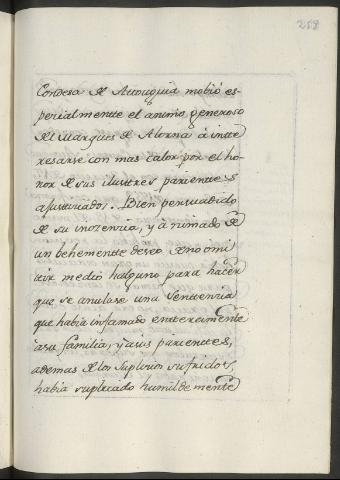 258
Condesa de Atouguia mobió es-
pecialmentte el animo generoso
del Marques de Alorna à intte
resarse con mas calor por el ho-
nor de sus ilustres parienttes
ajusticiados. Bien persuadido
de su inozencia, y animado de
un behementte deseo de no omi
ttir medio halguno para hacer
que se anulase una Senttencia
que habia infamado entteramente
à su familia, y à sus parienttes,
ademas de los suplicios sufridos,
habia suplicado humildemente